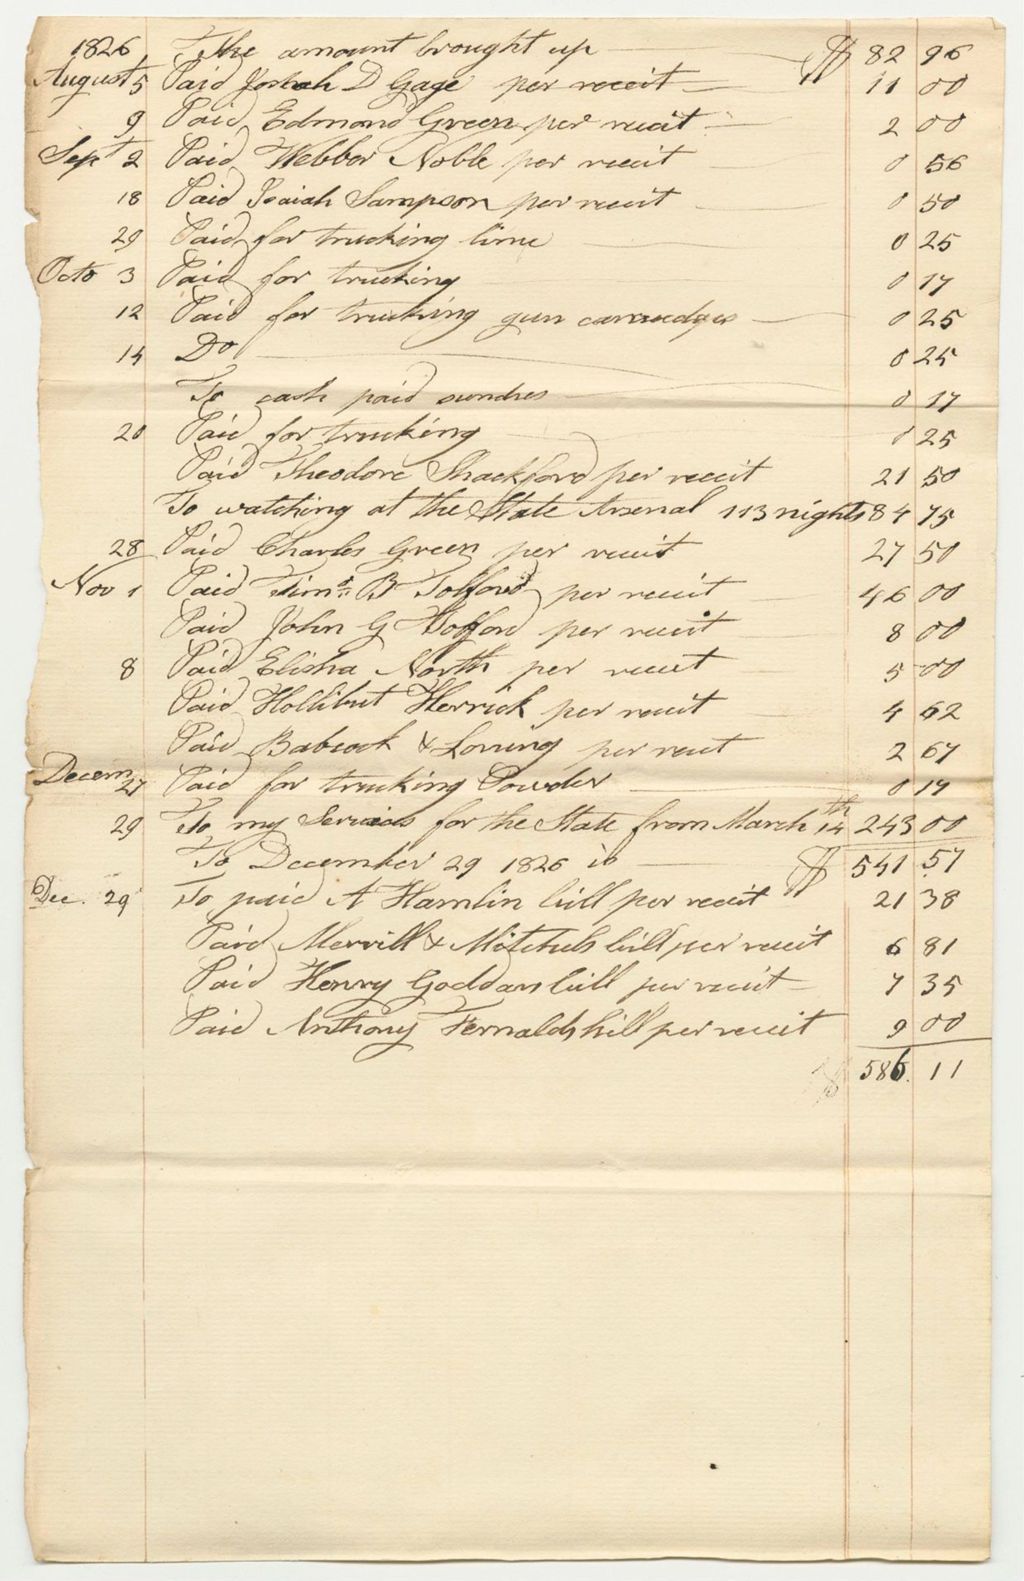 1826 The amount brought up $ 82 96
August 5 Paid Josiah D Gage per receit 11 00
9 Paid Edmond Green per receit 2 00
Sept 2 Paid Webber Noble per receit 0 56
18 Paid Isaiah Sampson per receit 0 50
29 Paid for trucking lime 0 25
Octo 3 Paid for trucking 0 17
12 Paid for trucking gun 0 25
14 Do 0 25
To cash paid sundres 0 17
20 Paid for trucking 0 25
Paid Theodore Shackford per receit 21 50
To watching at the State Arsenal 113 nights 84 75
28 Paid Charles Green per receit 27 50
Nov 1 Paid Timo. B Tolford per receit 46 00
Paid John G Hofford per receit 8 00
8 Paid Elisha North per receit 5 00
Paid Hollibut Herrick per receit 4 62
Paid Babcock & Loring per receit 2 67
Decem 27 Paid for trucking Powder 0 17
29 To my Services for the State from March 14th 243 00
To December 29 1826 is $ 541 57
Dec. 29 To paid A Hamlin bill per receit 21 38
Paid Merrill & Mitchels bill per receit 6 81
Paid Henry Goddars bill per receit 7 35
Paid Anthony Fernalds bill per receit 9 00
$ 586. 11